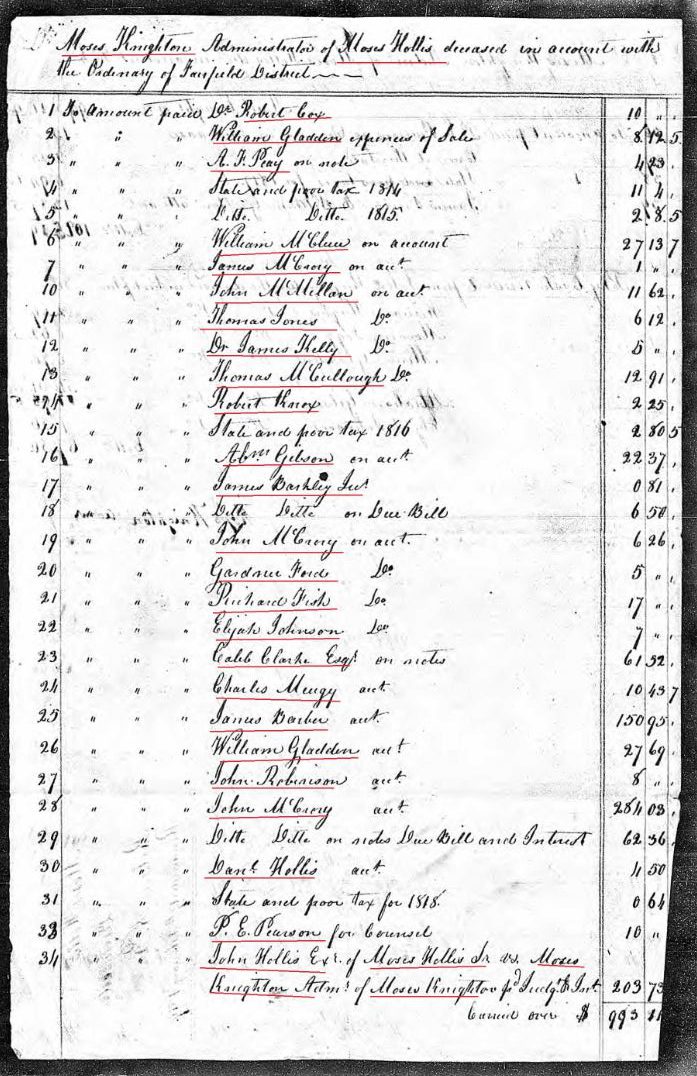 Dr. Moses Knighton Administrator of Moses Hollis deceased in account with
the Ordinary of Fairfield District
1 To Amount paid Dr. Robert Cox 10 " .
2 " " " William Gladden expences of Sale 8 12 5
3 " " " A. F. Peay on note 4 23 .
4 " " " State and poor tax 1814 11 4 .
5 " " " Ditto Ditto 1815 2 8 5
6 " " " William McClure on account 27 13 7
7 " " " James McCrory on acct. 1 " .
10 " " " John McMillan on acct. 11 62 .
11 " " " Thomas Jones Do 6 12 .
12 " " " Dr James Kelly Do 5 " .
13 " " " Thomas McCullough Do 12 91
14 " " " Robert Knox 2 25 .
15 " " " State and poor tax 1816 2 80 5
16 " " " Abm Gibson on acct. 22 37 .
17 " " " James Barkley Junr. 0 81 .
18 " " " Ditto Ditto on Due Bill 6 50 .
19 " " " John McCrory on acct. 6 26 .
20 " " " Gardner Ford Do 5 " .
21 " " " Richard Fish Do 17 " .
22 " " " Elijah Johnson Do 7 " .
23 " " " Caleb Clarke Esqr. on notes 61 52 .
24 " " " Charles acct. 10 43 7
25 " " " James Barber acct. 150 95 .
26 " " " William Gladden acct 27 69
27 " " " John Robinson acct. 8 " .
28 " " " John McCrory acct. 284 03 .
29 " " " Ditto Ditto on notes Due Bill and Interest 62 36 .
30 " " " Danl. Hollis acct. 4 50
31 " " " State and poor tax for 1818 0 64
33 " " " P. E. Pearson for Counsel 10 "
34 " " " John Hollis Exr. of Moses Hollis Sr. vs. Moses
Knighton Admr. of Moses Knighton pd Judgt. & Int. 203 73
Carried over $ 993 11